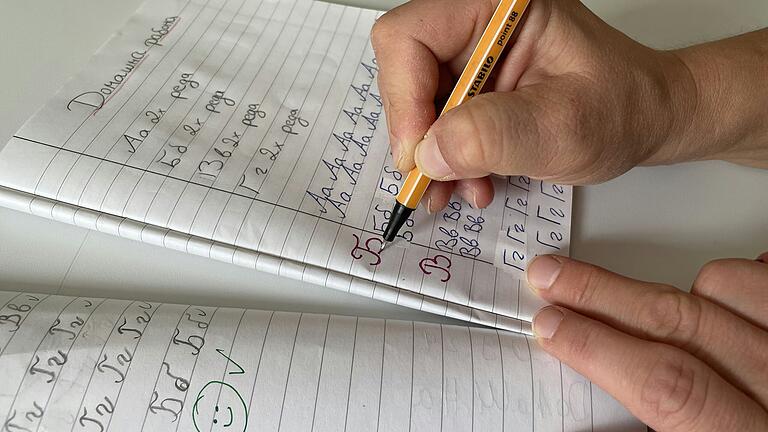 Домашна работа
Аа 2х реда
Бб 2х реда
Вв 2х реда
Гг 2х реда
Аа Аа Аа Аа Аа
Аа Аа Аа Аа Аа
Бб Бб
Бб
Вв Вв Вв
Вв Вв
Гг Гг Гг
Гг Гг Гг
Б
В
STABILO point 88
Вв
Гг Гг Гг
Гг Гг Гг
Бб Бб